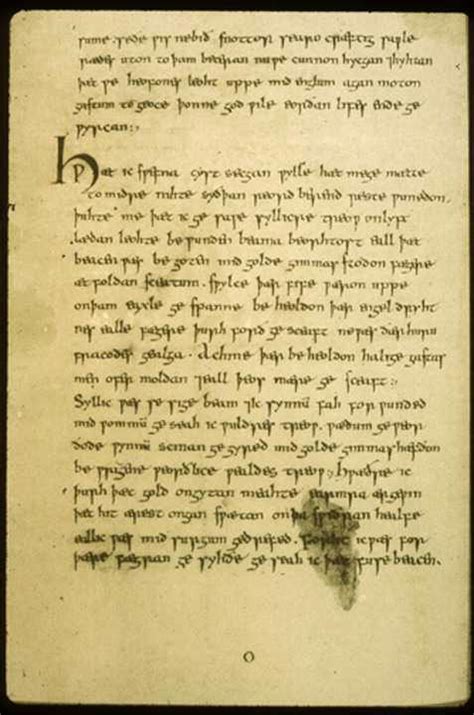 same rede ƿis ne bið snottor searo cræftig saƿle
rædes uton to þam beteran nu ƿe cunnon hycgan ⁊ hyhtan
þæt ƿe heofones leoht uppe mid englum agan moton
gastum to geoce þonne god ƿile eorðan lifes ende ge
ƿyrcan:,
Hƿæt ic sƿefna cyst secgan ƿylle hæt mege mætte
to midre nihte syðþan reord berend reste ƿunedon.
þuhte me þæt ic ge saƿe syllicre treoƿ on lyft
lædan leohte be ƿunden beama beorhtost eall þæt
beacen ƿæs be goten mid golde gimmas stodon fægere
æt foldan sceatum. sƿylce þær fife ƿæron uppe
on þam eaxle ge spanne be heoldon þær engel dryht
nes ealle fægere þurh forð ge sceaft ne ƿæs ðær huru
fracodes gealga. Ac hine þær be heoldon halige gastas
men ofer moldan ⁊ eall þeos mære ge sceaft:,
Syllic ƿæs se sige beam ⁊ ic synnū fah for ƿunded
mid ƿommū ge seah ic ƿuldres treoƿ. ƿædum ge ƿeor
ðode ƿynnū scinan ge gyred mid golde gimmas hæfdon
be ƿrigene ƿeorðlice ƿealdes treoƿ:, Hƿæðre ic
þurh þæt gold ongytan meahte earmra ærgeƿin
þæt hit ærest ongan sƿætan on þa sƿiðran healfe
eall ic ƿæs mid surgum gedrefed. Forht ic ƿæs for
þære fægran ge syhðe ge seah ic þæt fuse beacen.